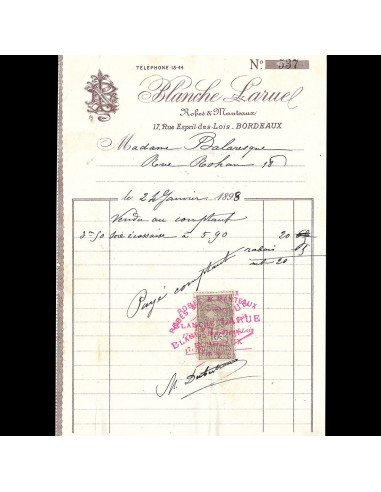 TÉLÉPHONE 18-44
No. 537
Blanche Larue
Robes & Manteaux
17, Rue Esprit-des-Lois, BORDEAUX
Madame Balaresque
Rue Rohan 18
le 24 Janvier 1898
Vendu au comptant
3-50 soie écossaise à 5,90 20
rabais
net 20
Payé comptant
ROBES & MANTEAUX
BLANCHE LARUE
BORDEAUX